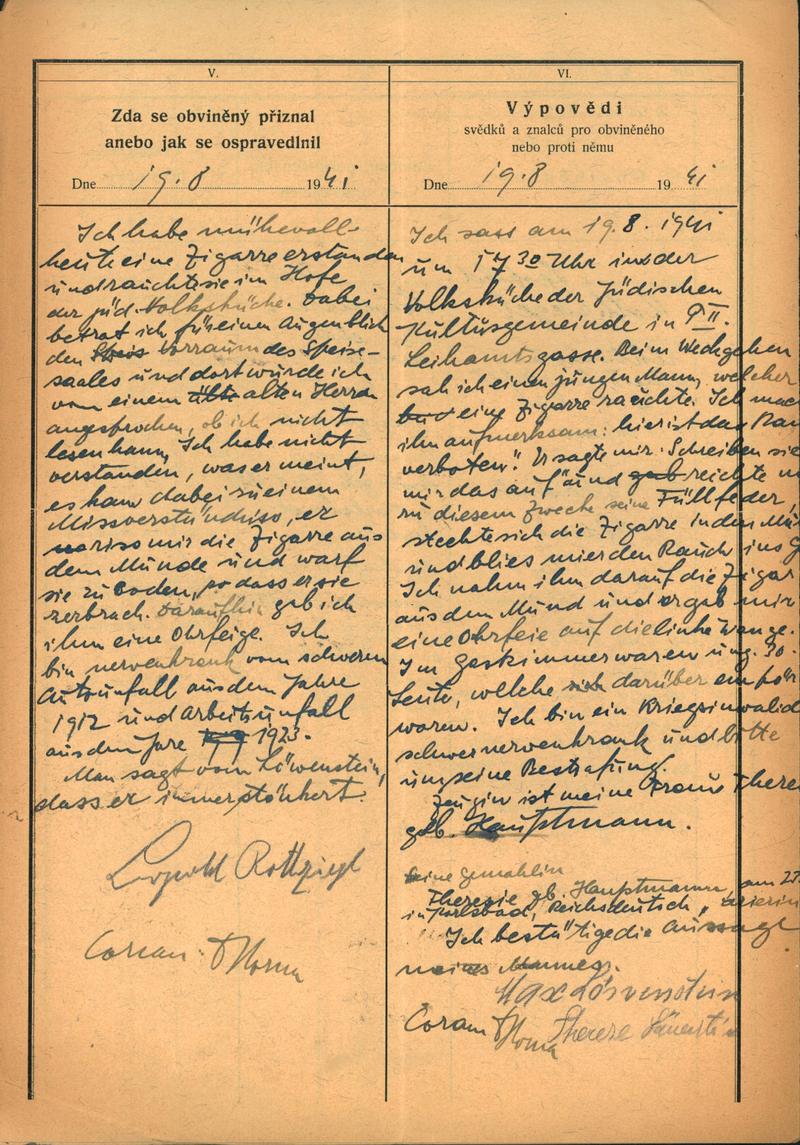 V.
Zda se obviněný přiznal
anebo jak se ospravedlnil
Dne 19.8 1941
Ich habe mühevoll
heute eine Zigarre erstanden
und rauchte sie im Hofe
der jüd. Volksküche. Dabei
betrat ich für einen Augenblick
den Vorraum des Speise-
saales und dort wurde ich
von einem alten Herrn
angesprochen, ob ich nicht
lesen kann, Ich habe nicht
verstanden, was er meint,
es kam dabei zu einem
Missverständniss, er
riss mir die Zigarre aus
dem Munde und warf
sie zu Boden, so dass er sie
zerbrach. Daraufhin gab ich
ihm eine Ohrfeige. Ich
bin nervenkrank vom schweren
Autounfall aus dem Jahre
1912 und Arbeitsunfall
aus dem Jare 1923.
Man sagt vom Löwenstein,
dass er immer stänkert.
Leopold
VI.
Výpovědi
svědků a znalců pro obviněného
nebo proti němu
Dne 19.8 1941
Ich sass am 19.8.1941
um 17 30 Uhr in der
Volksküche der Jüdischen
Kultusgemeinde in P II.
Leihamtsgasse. Beim Weckgehen
sah ich einen jungen Mann, welcher
eine Zigarre rauchte. Ich
ihn aufmerksam: hier ist das
verboten." Er sagte mir: Schreiben sie
mir das auf" und reichte
zu diesem Zwecke seine Füllfeder,
steckte sich die Zigarre in den
und blies mir den Rauch ins
Ich nahm ihm darauf die
aus dem Mund und er gab mir
eine Ohrfeie auf die linke Wange.
Im waren ung. 30
Leute, welche darüber
waren. Ich bin ein Kriegsinvalid
schwer nervenkrank und bitte
um seine Bestrafung.
Zeugin ist meine Frau
geb. Hauptmann.
Seine Gemahlin
Theresie gb. Hauptmann, am
in Karlsbad, Reichsdeutsch,
Ich bestätige die Aussage
meines Mannes.
Max Löwenstein
Coram
Therese